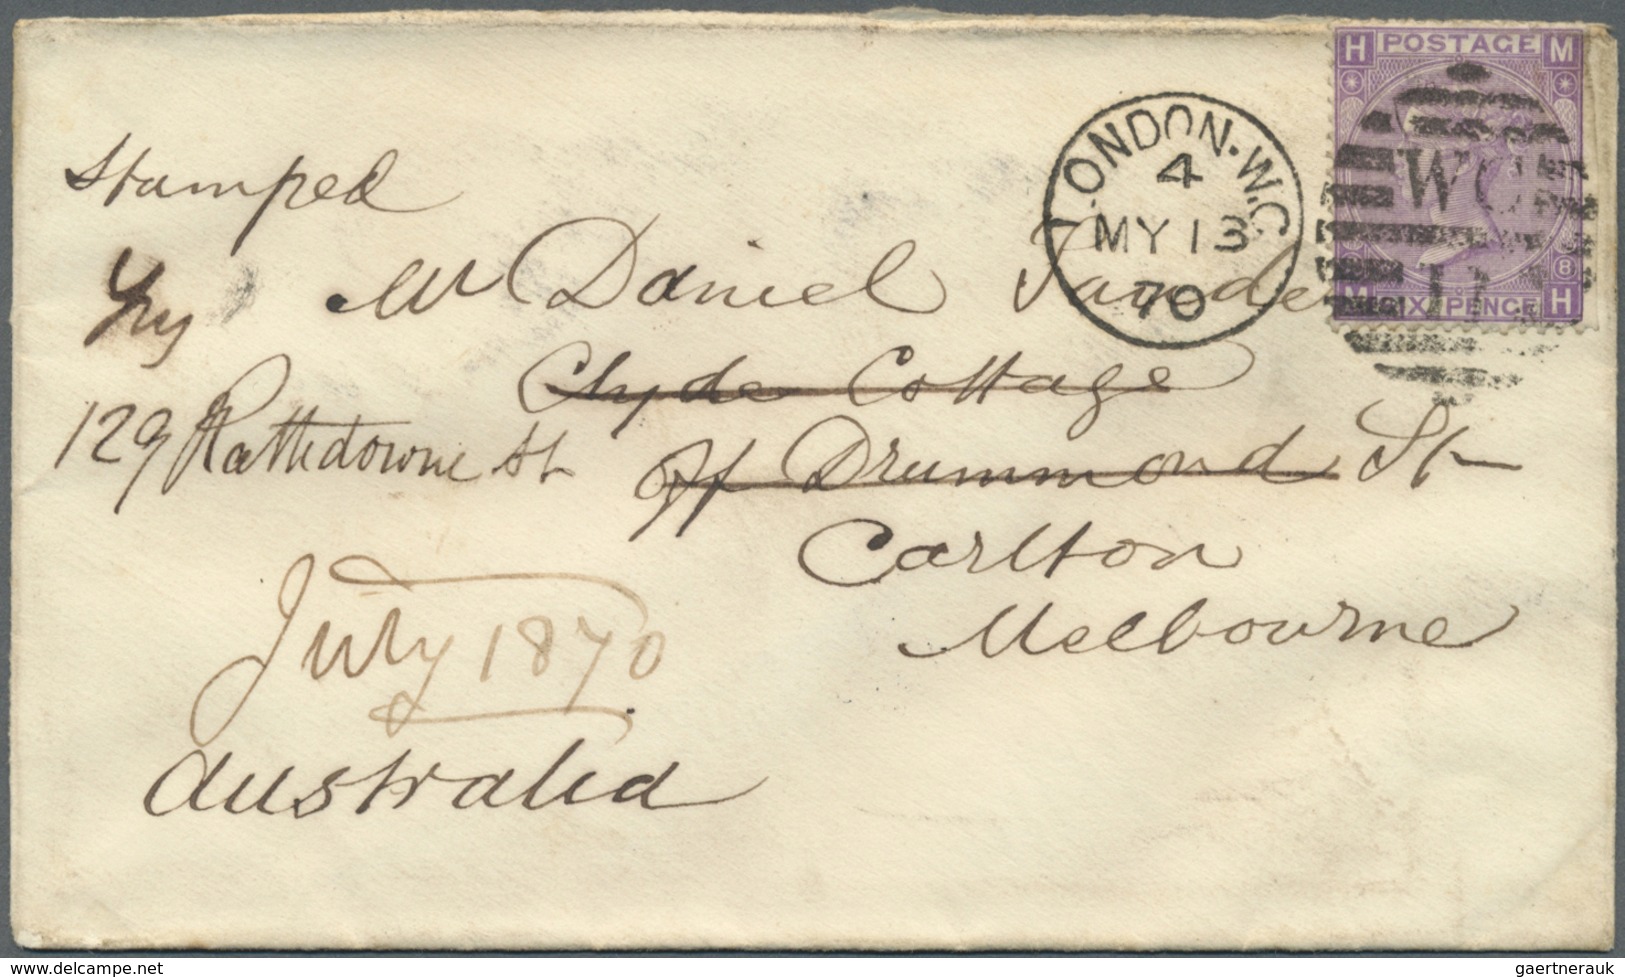 H POSTAGE M
LONDON·W.C
4
MY 13
70
WC
8
M SIXPENCE H
Stamped
Mr Daniel
Clyde Cottage
129 Rathdowne St
off Drummond St
Carlton
Melbourne
July 1870
Australia
www.delcampe.net
gaertnerauk